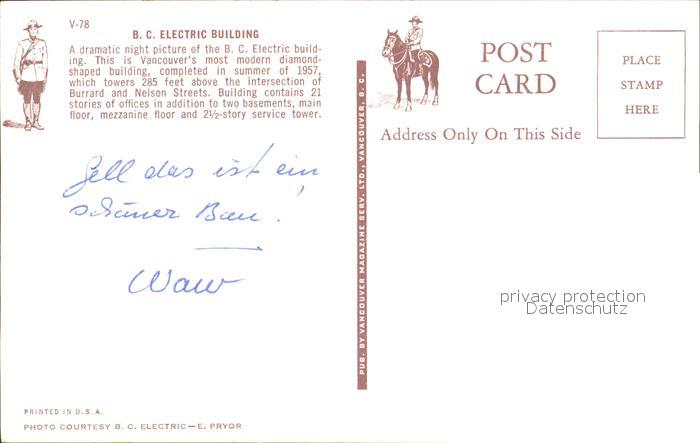 V-78
B. C. ELECTRIC BUILDING
A dramatic night picture of the B. C. Electric build-
ing. This is Vancouver's most modern diamond-
shaped building, completed in summer of 1957,
which towers 285 feet above the intersection of
Burrard and Nelson Streets. Building contains 21
stories of offices in addition to two basements, main
floor, mezzanine floor and 2½-story service tower.
Gell das ist ein
schöner Bau!
PRINTED IN U.S.A.
PHOTO COURTESY B. C. ELECTRIC—E. PRYOR
PUB. BY VANCOUVER MAGAZINE SERV. LTD., VANCOUVER, B. C.
POST
CARD
Address Only On This Side
PLACE
STAMP
HERE
privacy protection
Datenschutz